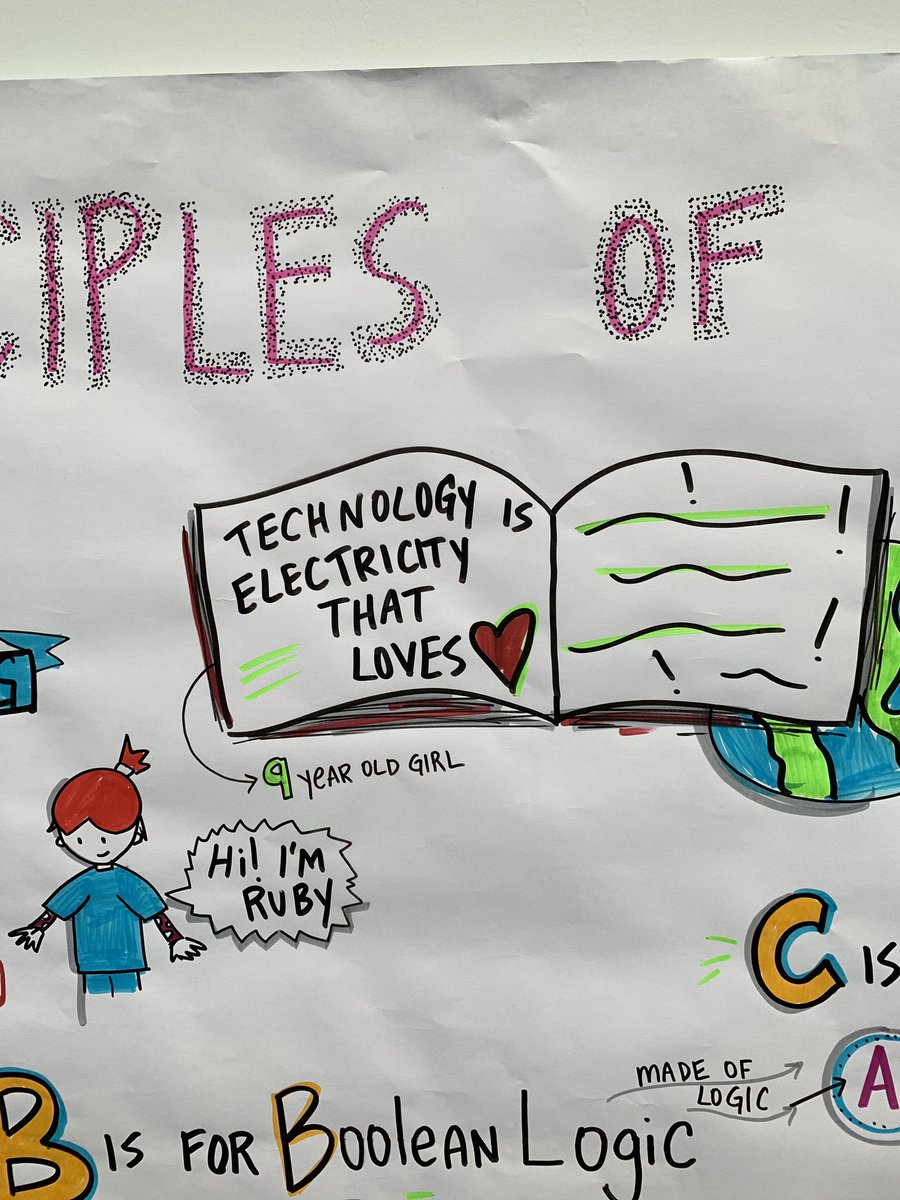 CIPLES OF
TECHNOLOGY IS
ELECTRICITY
THAT
LOVES
9 YEAR OLD GIRL
G
Hi! I'M
RUBY
C IS
MADE OF
LOGIC
A
B IS FOR Boolean Logic